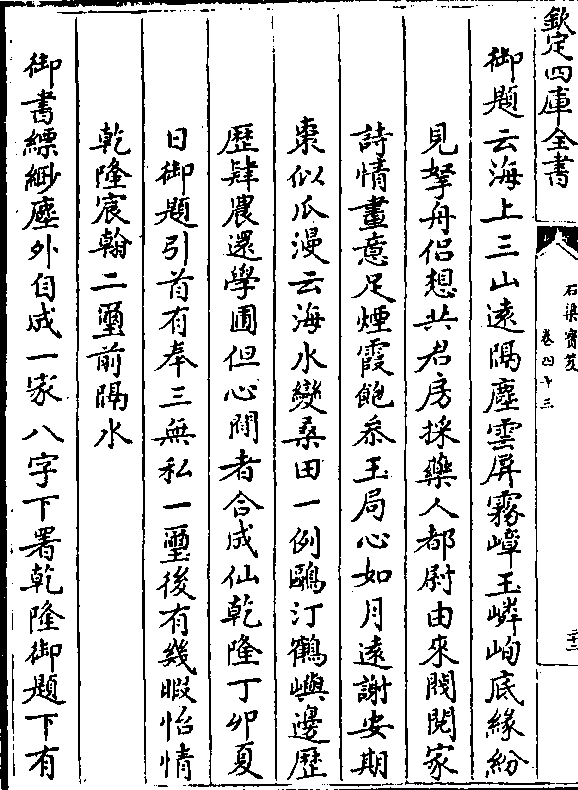 欽定四庫全書
石渠寶笈
卷四十三
御題云海上三山遠隔塵雲屏霧嶂玉嶙峋底緣紛
見拏舟侣想共君房採藥人都尉由來閥閱家
詩情畫意足煙霞飽叅玉局心如月遠謝安期
棗似瓜漫云海水變桑田一例鷗汀鶴嶼邊歴
歴肆農還學圃但心閒者合成仙乾隆丁夘夏
日御題引首有奉三無私一璽後有幾暇怡情
乾隆宸翰二璽前隔水
御書縹緲塵外自成一家八字下署乾隆御題下有